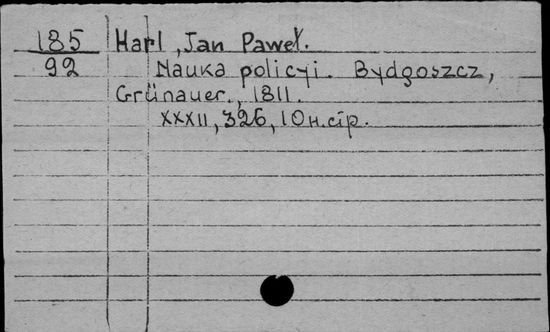 185 Harl, Jan Paweł.
92 Nauka policyi. Bydgoszcz,
Grünauer., 1811.
XXXII, 326, 10 н. сiр.